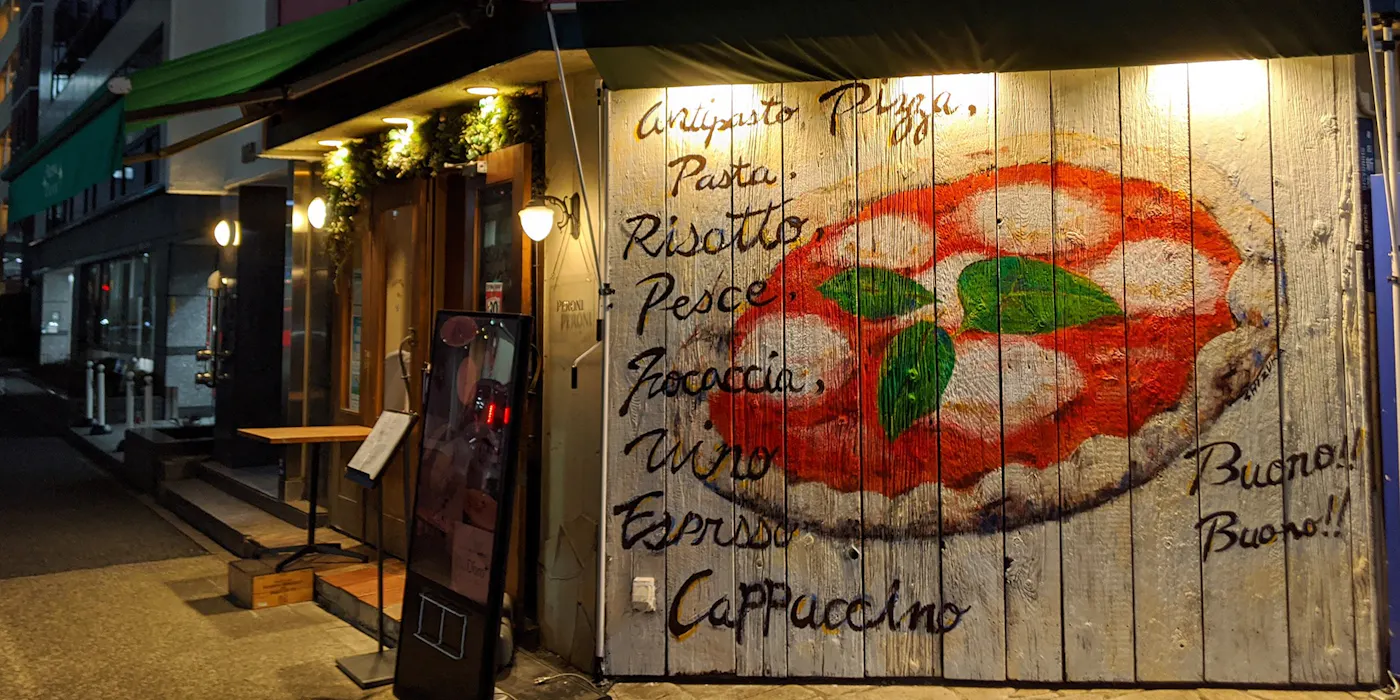 Antipasto Pizza,
Pasta.
Risotto,
Pesce.
Focaccia,
Vino
Esprsso
Cappuccino
Buono!!
Buono!!
PERONI
PERONI